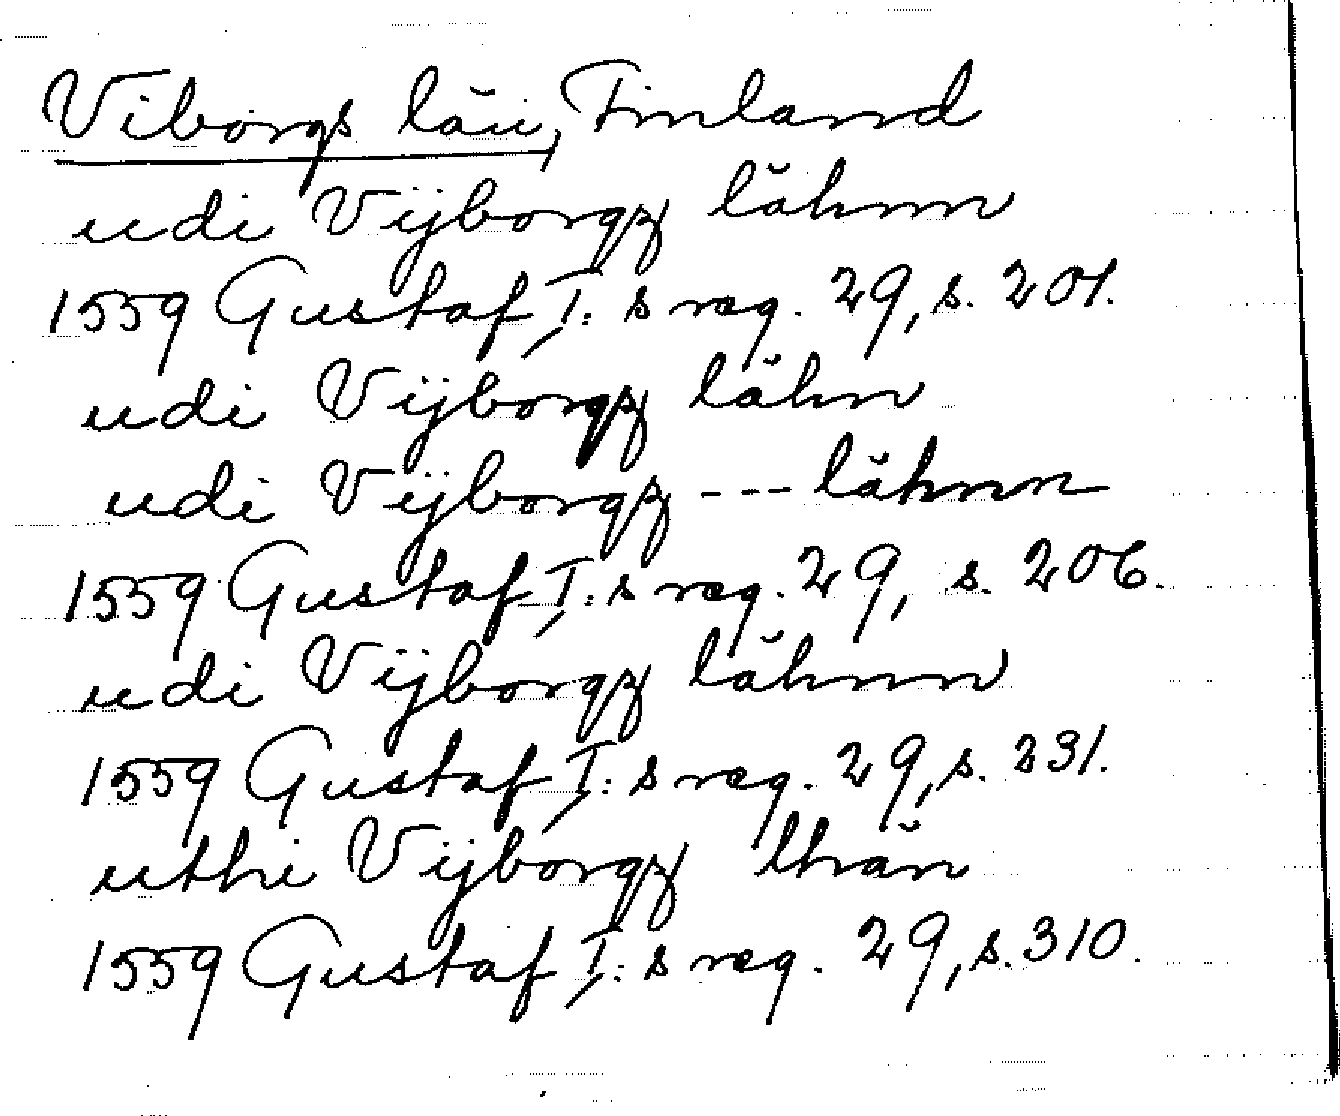 Viborgs län, Finland
udi Vijborgz lähnn
1559 Gustaf I:s reg. 29, s. 201.
udi Vijborgz lähn
udi Vijborgz --- lähnn
1559 Gustaf I:s reg. 29, s. 206.
udi Vijborgz lähnn
1559 Gustaf I:s reg. 29, s. 231.
uthi Vijborgz lhän
1559 Gustaf I:s reg. 29, s. 310.